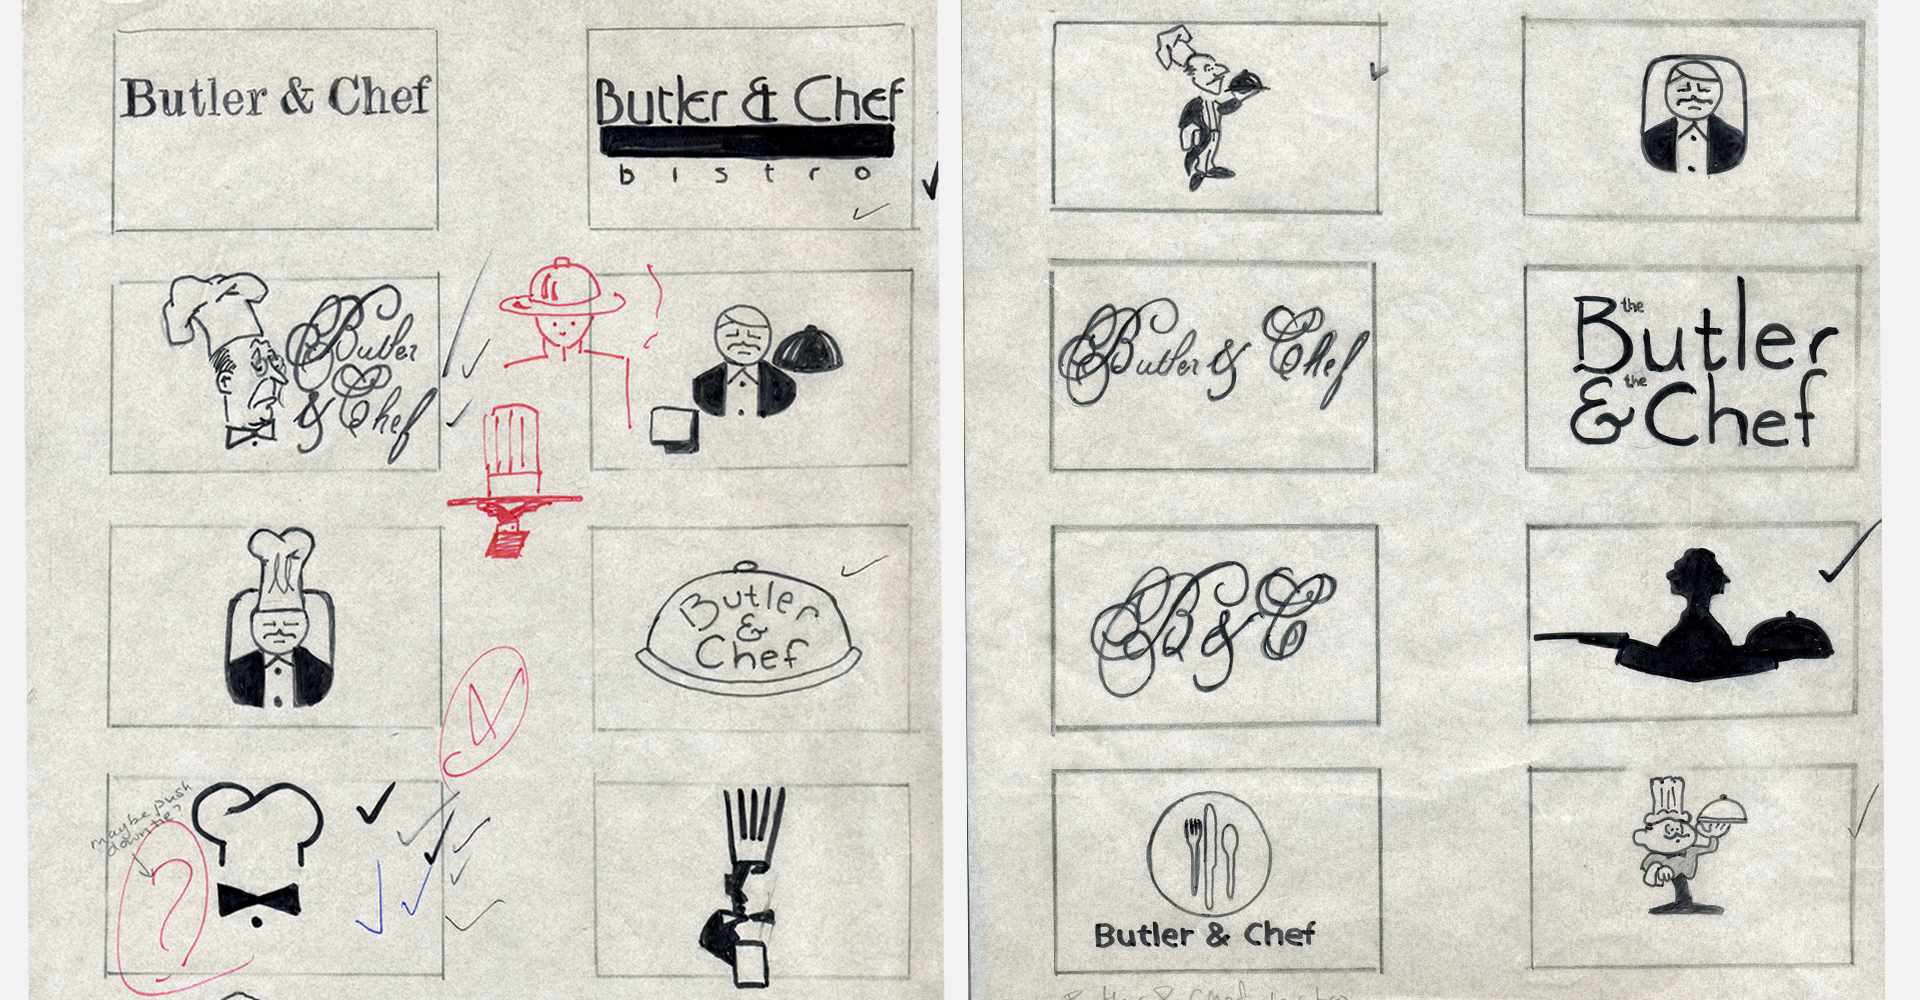 Butler & Chef
Butler & Chef
bistro
Butler
& Chef
Butler
&
Chef
maybe push
down tie?
?
Butler & Chef
the
Butler
the
& Chef
B & C
Butler & Chef